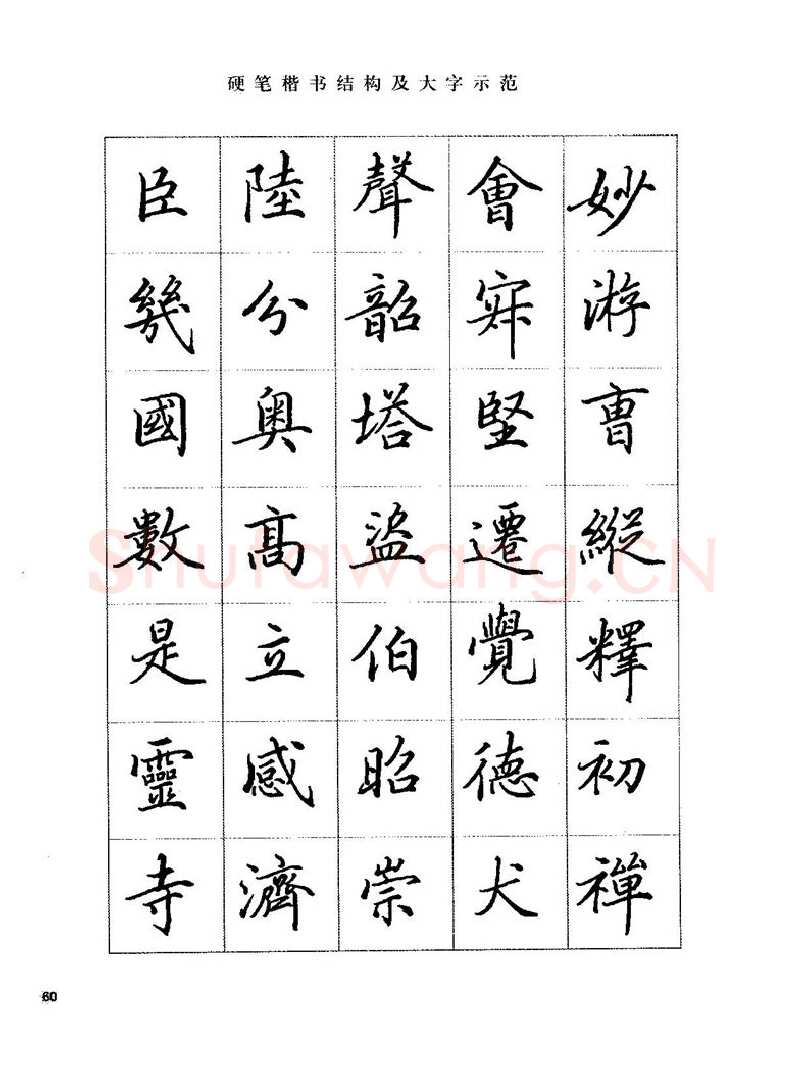 硬笔楷书结构及大字示范
臣 陸 聲 會 妙
幾 分 韶 游
國 奥 塔 堅
數 髙 盜 遷 縱
Shufawang.CN
是 立 伯 覺 釋
靈 感 昭 德 初
寺 濟 崇 犬 禪
60